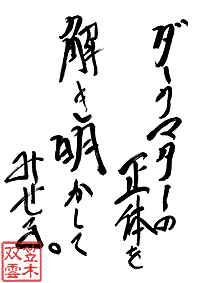 ダークマターの
正体を
解き明かして
みせる。
笠木
双雲